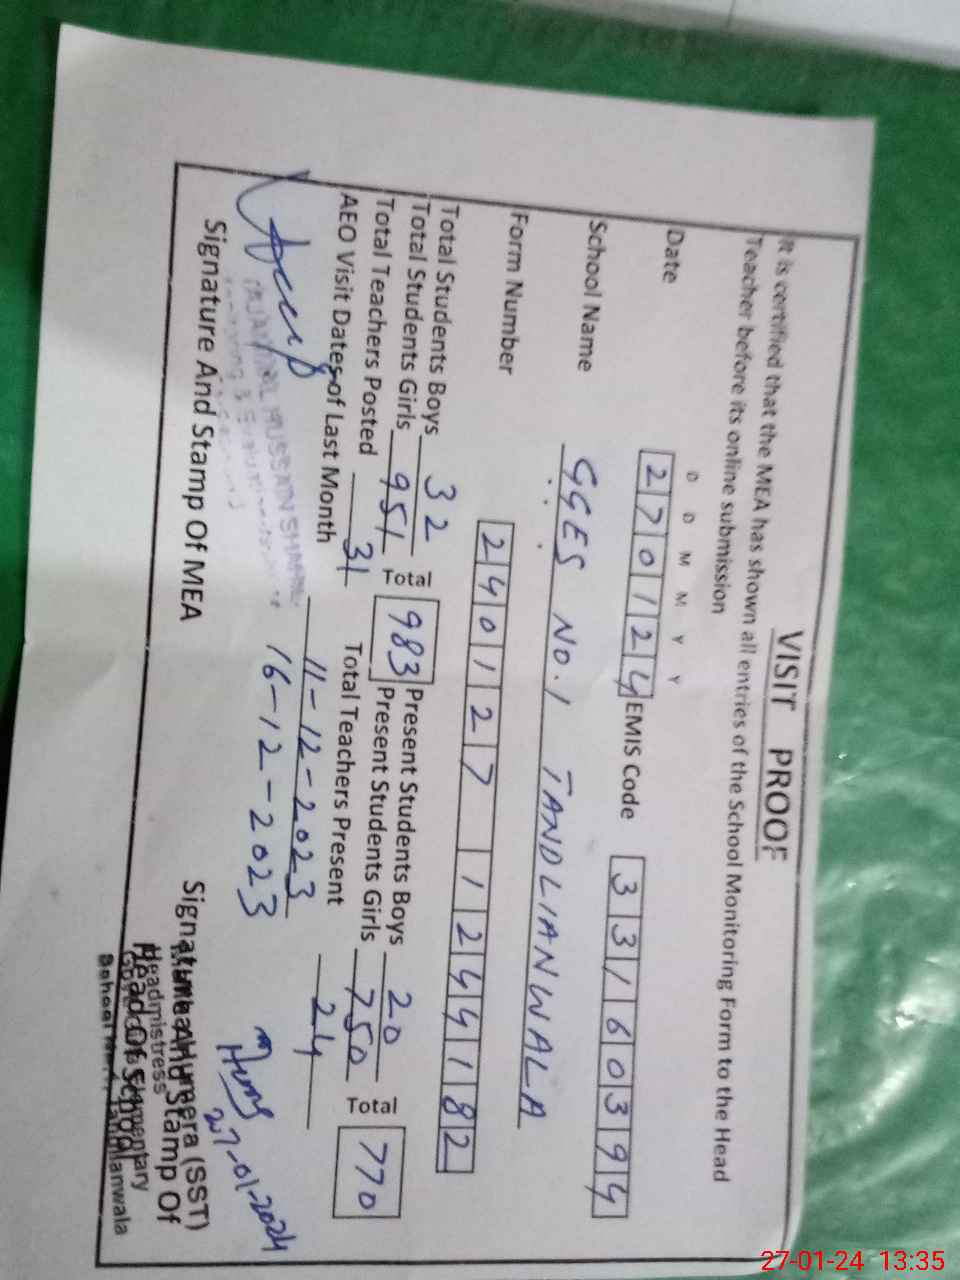 VISIT PROOF
It is certified that the MEA has shown all entries of the School Monitoring Form to the Head
Teacher before its online submission
D D M M Y Y
Date 270124 EMIS Code 33160394
School Name GGES No.1 TANDLIANWALA
Form Number 240127 1244182
Total Students Boys 32 Total 983 Present Students Boys 20 Total 770
Total Students Girls 951 Present Students Girls 750
Total Teachers Posted 31 Total Teachers Present 24
AEO Visit Dates of Last Month 11-12-2023
16-12-2023
HUSSAIN
27-01-2024
Signature And Stamp Of MEA
Signature And Stamp Of
Head Of School
Humera (SST)
Headmistress
Elementary
School
27-01-24 13:35